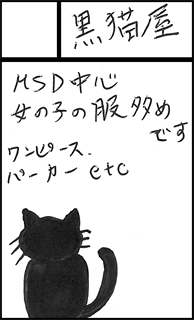 黒猫屋
MSD中心
女の子の服多め
です
ワンピース.
パーカー etc